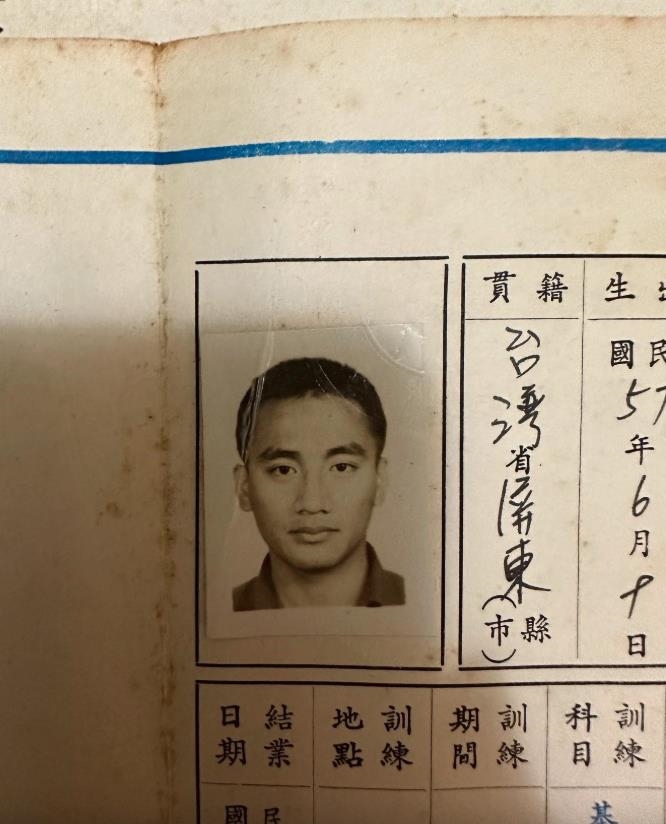 出生
民國
57
年
6
月
日
籍貫
台灣省屏東縣(市)
訓練科目
訓練期間
訓練地點
結業日期
基
民國